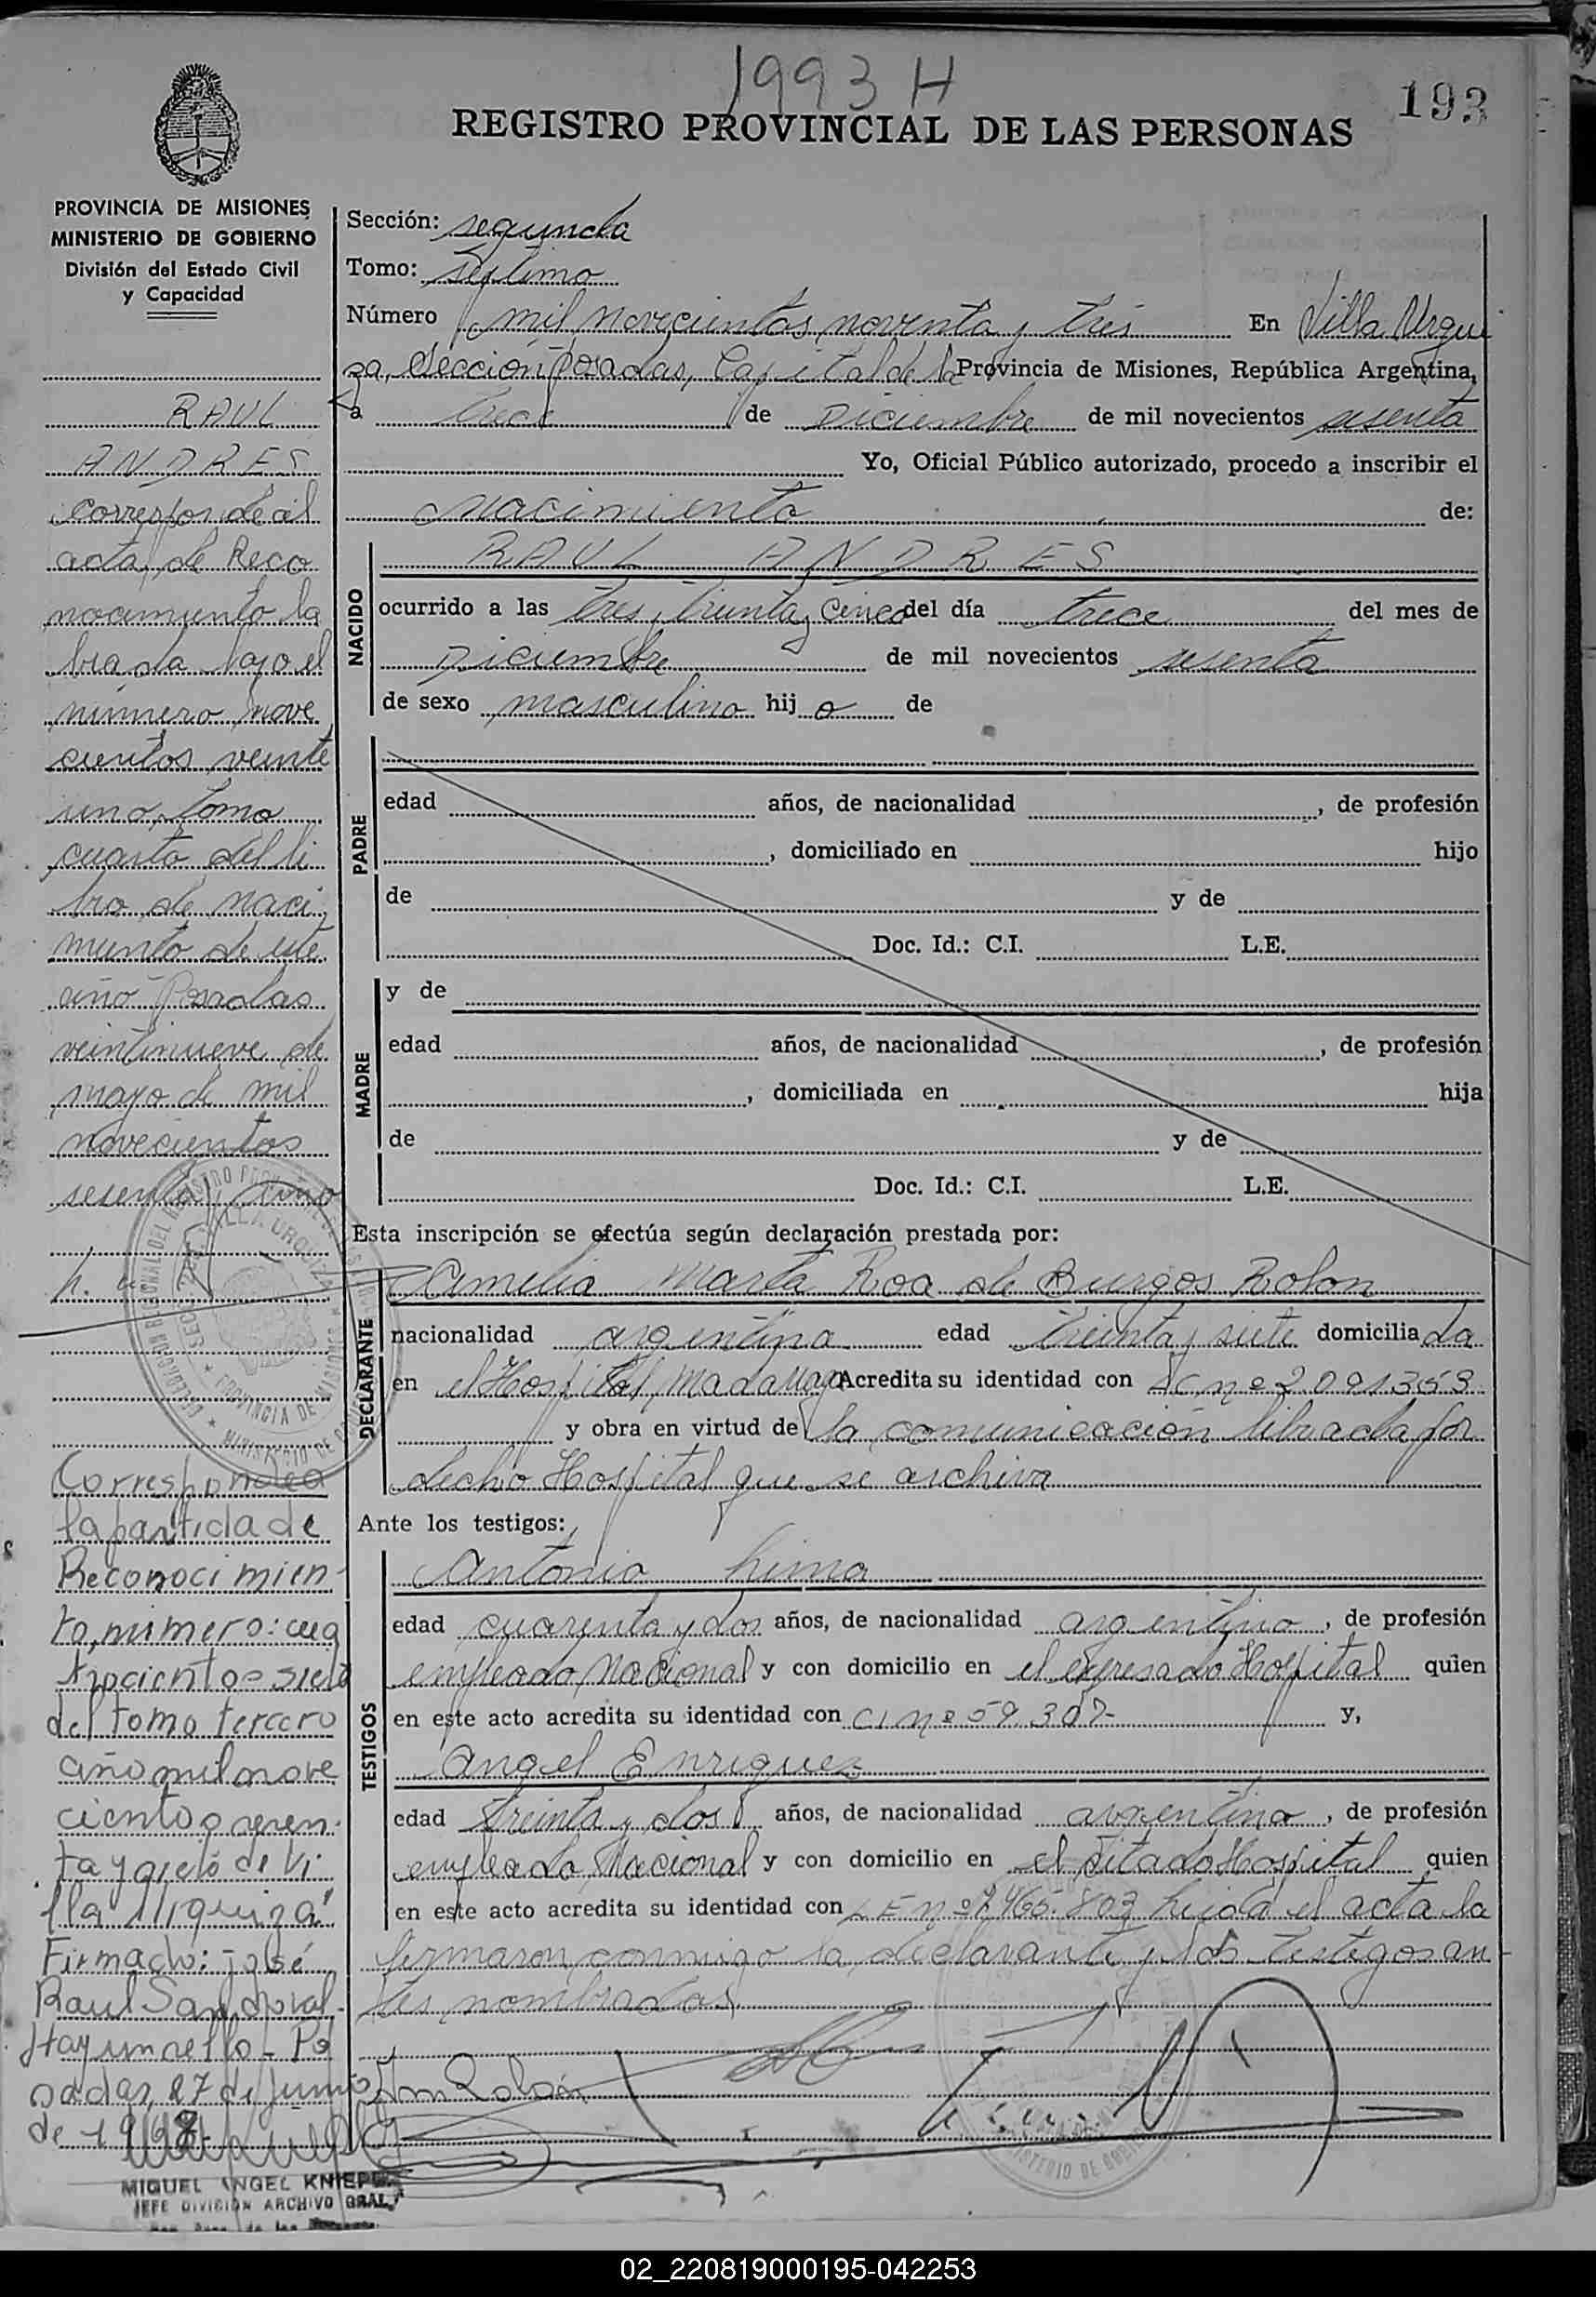 1993 H
193
REGISTRO PROVINCIAL DE LAS PERSONAS
PROVINCIA DE MISIONES
MINISTERIO DE GOBIERNO
División del Estado Civil
y Capacidad
RAUL
ANDRES
corresponde al
acta de Reco
nocimiento la
brada bajo el
número nove
cientos veinte
uno, tomo
cuarto del li
bro de naci
miento de este
año Posadas
veintinueve de
mayo de mil
novecientos
sesenta y uno
Corresponde a
la partida de
Reconocimien-
to, número: cua
trocientos siete
del tomo tercero
año mil nove
cientos sesen-
ta y siete de Vi-
lla Urquiza
Firmado: José
Raul Sandoval-
Hay un sello- Po
sadas, 27 de junio
de 1968-
MIGUEL ANGEL KNIEP
JEFE DIVISION ARCHIVO GRAL.
Sección: segunda
Tomo: Septimo
Número mil novecientos noventa y tres En Villa Urqui
za, Sección Posadas, Capital de la Provincia de Misiones, República Argentina,
a trece de Diciembre de mil novecientos sesenta
Yo, Oficial Público autorizado, procedo a inscribir el
Nacimiento de:
NACIDO
RAUL ANDRES
ocurrido a las tres, treinta y cinco del día trece del mes de
Diciembre de mil novecientos sesenta
de sexo masculino hijo de
PADRE
edad años, de nacionalidad , de profesión
, domiciliado en hijo
de y de
Doc. Id.: C.I. L.E.
MADRE
y de
edad años, de nacionalidad , de profesión
, domiciliada en hija
de y de
Doc. Id.: C.I. L.E.
Esta inscripción se efectúa según declaración prestada por:
DECLARANTE
Amelia Marta Roa de Burgos Rolon
nacionalidad argentina edad treinta y siete domiciliada
en el Hospital Madariaga Acredita su identidad con LC nº 2.091.353
y obra en virtud de la comunicación librada por
dicho Hospital que se archiva
Ante los testigos:
TESTIGOS
Antonio Lima
edad cuarenta y dos años, de nacionalidad argentino, de profesión
empleado Nacional y con domicilio en el expresado Hospital quien
en este acto acredita su identidad con CI nº 59.307- y,
Angel Enriquez
edad treinta y dos años, de nacionalidad argentina, de profesión
empleado Nacional y con domicilio en el citado Hospital quien
en este acto acredita su identidad con LE nº 7.465.803 leída el acta la
firmaron conmigo la declarante y los testigos an
tes nombrados
02_220819000195-042253